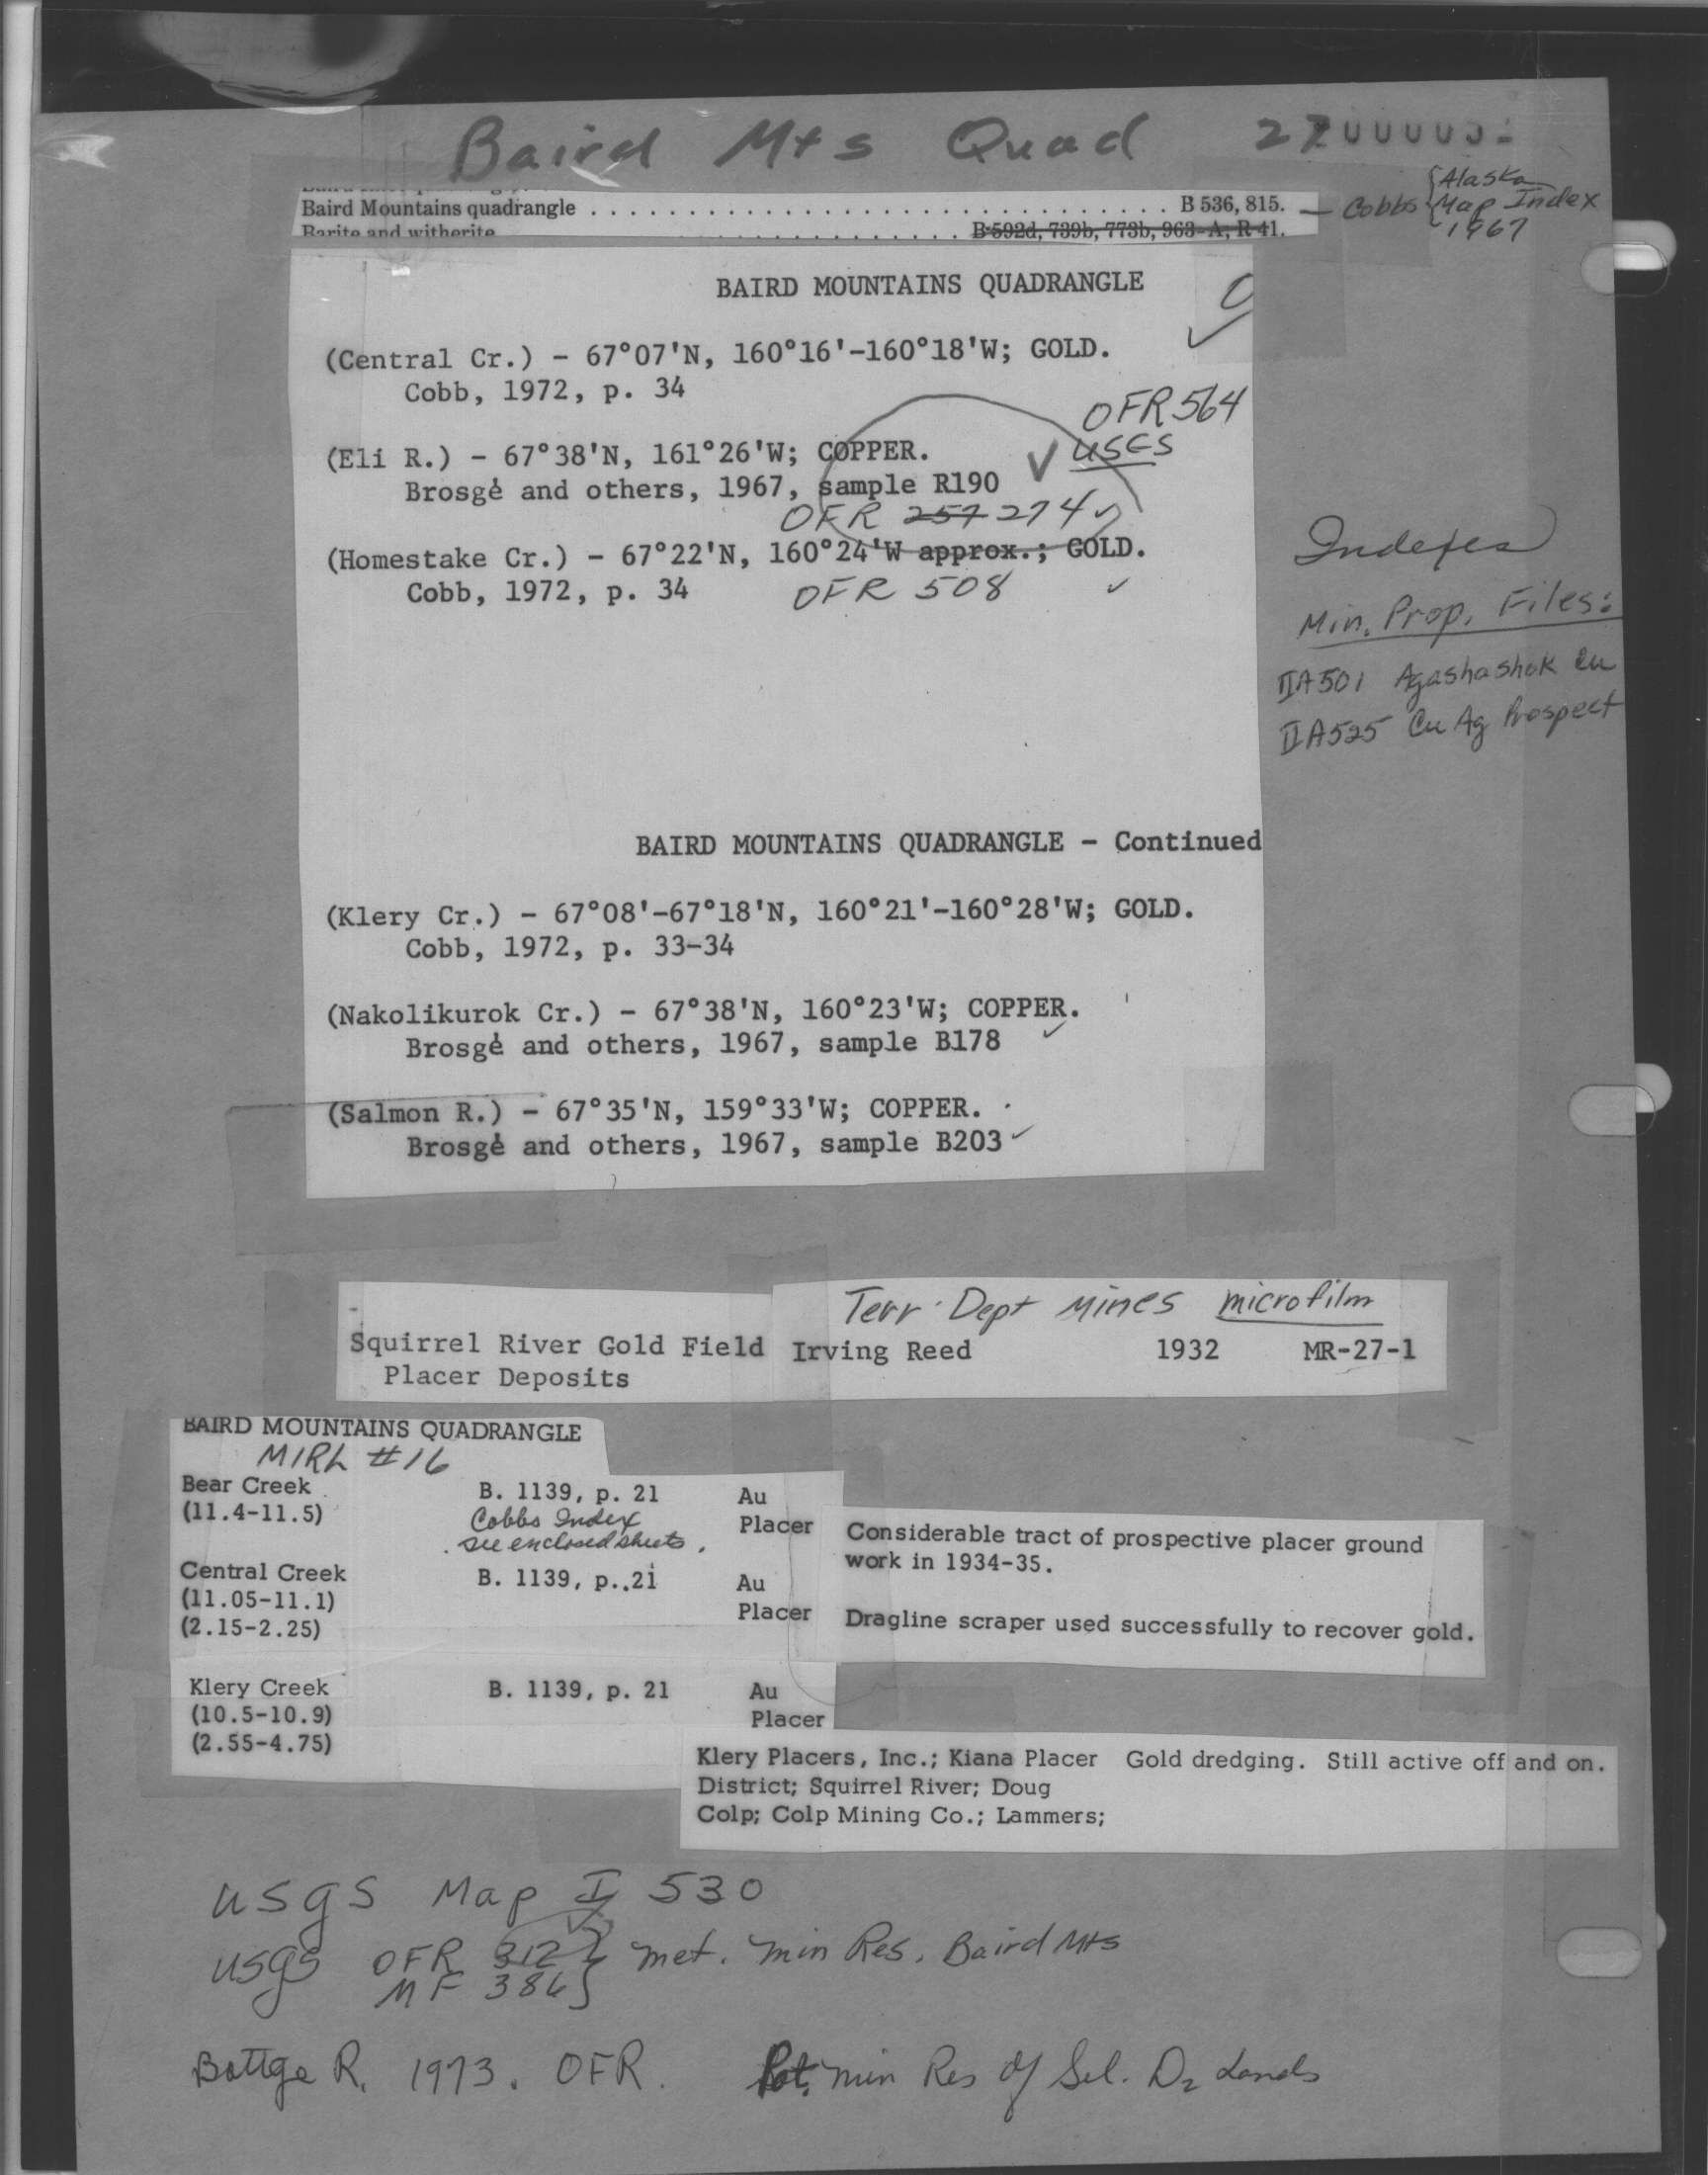 Baird Mts Quad 27
Baird Mountains quadrangle . . . . . . . . . . . . . . . . . . . . . . . . . . . . . B 536, 815. — Cobbs {Alaska Map Index 1967
Barite and witherite . . . . . . . . . . . . . B 592d, 739b, 773b, 963-A; R 41.
BAIRD MOUNTAINS QUADRANGLE
(Central Cr.) - 67°07'N, 160°16'-160°18'W; GOLD.
Cobb, 1972, p. 34
OFR 564
USGS
(Eli R.) - 67°38'N, 161°26'W; COPPER.
Brosgé and others, 1967, sample R190
OFR 257 274
(Homestake Cr.) - 67°22'N, 160°24'W approx.; GOLD.
Cobb, 1972, p. 34 OFR 508
Indexes
Min. Prop. Files:
IIA501 Agashashok Cu
IIA525 Cu Ag Prospect
BAIRD MOUNTAINS QUADRANGLE - Continued
(Klery Cr.) - 67°08'-67°18'N, 160°21'-160°28'W; GOLD.
Cobb, 1972, p. 33-34
(Nakolikurok Cr.) - 67°38'N, 160°23'W; COPPER.
Brosgé and others, 1967, sample B178
(Salmon R.) - 67°35'N, 159°33'W; COPPER.
Brosgé and others, 1967, sample B203
Terr. Dept Mines microfilm
Squirrel River Gold Field Irving Reed 1932 MR-27-1
Placer Deposits
BAIRD MOUNTAINS QUADRANGLE
MIRL #16
Bear Creek B. 1139, p. 21 Au
(11.4-11.5) Cobbs Index Placer Considerable tract of prospective placer ground
see enclosed sheets. work in 1934-35.
Central Creek B. 1139, p. 21 Au
(11.05-11.1) Placer Dragline scraper used successfully to recover gold.
(2.15-2.25)
Klery Creek B. 1139, p. 21 Au
(10.5-10.9) Placer
(2.55-4.75)
Klery Placers, Inc.; Kiana Placer Gold dredging. Still active off and on.
District; Squirrel River; Doug
Colp; Colp Mining Co.; Lammers;
USGS Map I 530
USGS OFR 312 } met. min Res. Baird Mts
MF 386 }
Bottge R. 1973. OFR. Pot. min Res of Sel. D2 Lands